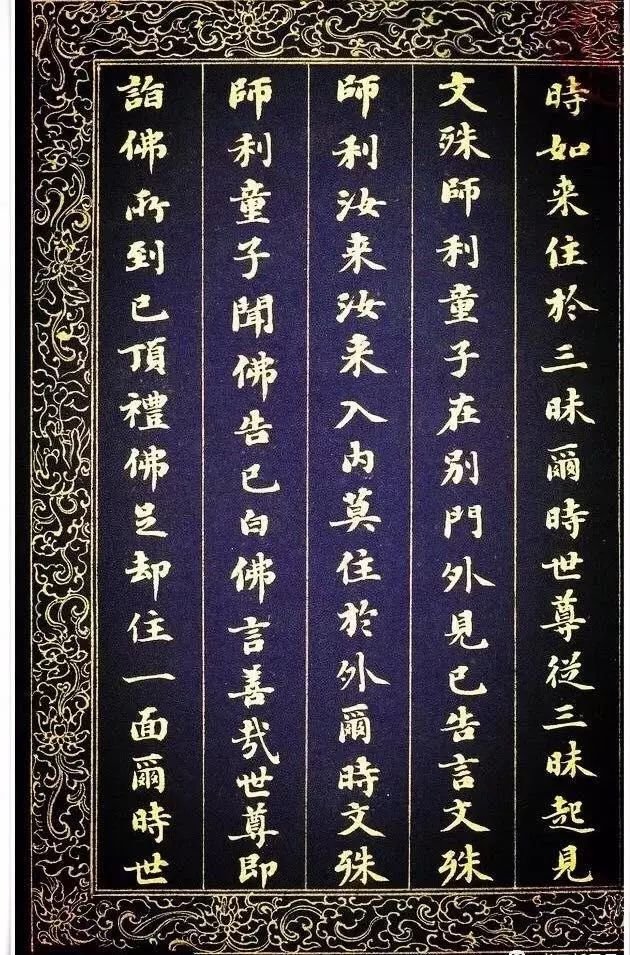 時如来住於三昧爾時世尊從三昧起見
文殊師利童子在別門外見已告言文殊
師利汝来汝来入内莫住於外爾時文殊
師利童子聞佛告已白佛言善哉世尊即
詣佛所到已頂禮佛足却住一面爾時世